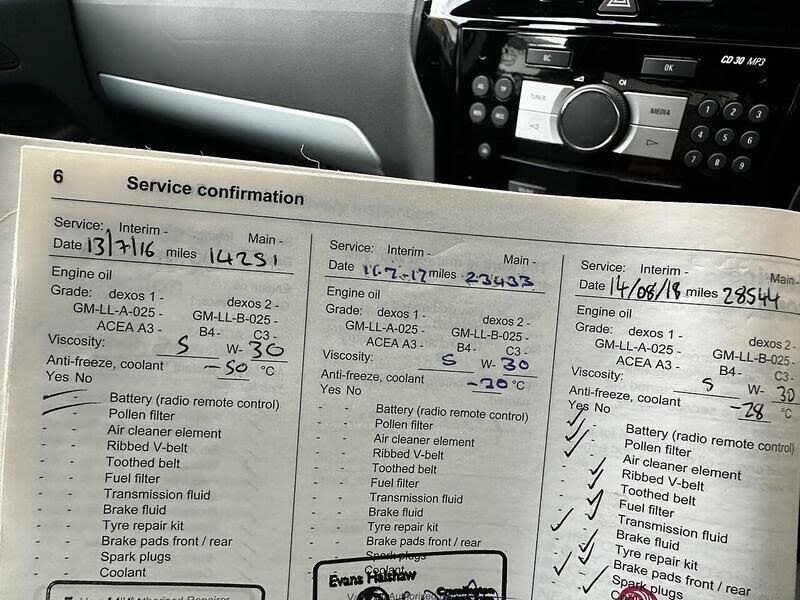 BC
OK
CD 30 MP3
TUNER
MEDIA
1 2 3
4 5 6
7 8 9
6 Service confirmation
Service: Interim - Main -
Date 13/7/16 miles 14231
Engine oil
Grade: dexos 1 - dexos 2 -
GM-LL-A-025 - GM-LL-B-025 -
ACEA A3 - B4- C3 -
Viscosity: 5 W- 30
Anti-freeze, coolant -50 °C
Yes No
- Battery (radio remote control)
- Pollen filter
- - Air cleaner element
- - Ribbed V-belt
- - Toothed belt
- - Fuel filter
- - Transmission fluid
- - Brake fluid
- - Tyre repair kit
- - Brake pads front / rear
- - Spark plugs
- - Coolant
Service: Interim - Main -
Date 11.7.17 miles 23433
Engine oil
Grade: dexos 1 - dexos 2 -
GM-LL-A-025 - GM-LL-B-025 -
ACEA A3 - B4 - C3 -
Viscosity: 5 W- 30
Anti-freeze, coolant -20 °C
Yes No
- - Battery (radio remote control)
- - Pollen filter
- - Air cleaner element
- - Ribbed V-belt
- - Toothed belt
- - Fuel filter
- - Transmission fluid
- - Brake fluid
- - Tyre repair kit
- - Brake pads front / rear
- - Spark plugs
Coolant
Evans Halshaw
Service: Interim - Main-
Date 14/08/18 miles 28544
Engine oil
Grade: dexos 1 - dexos 2 -
GM-LL-A-025 - GM-LL-B-025 -
ACEA A3 - B4 - C3 -
Viscosity: 5 W- 30
Anti-freeze, coolant -28 °C
Yes No
Battery (radio remote control)
Pollen filter
Air cleaner element
Ribbed V-belt
Toothed belt
Fuel filter
Transmission fluid
Brake fluid
Tyre repair kit
Brake pads front / rear
Spark plugs